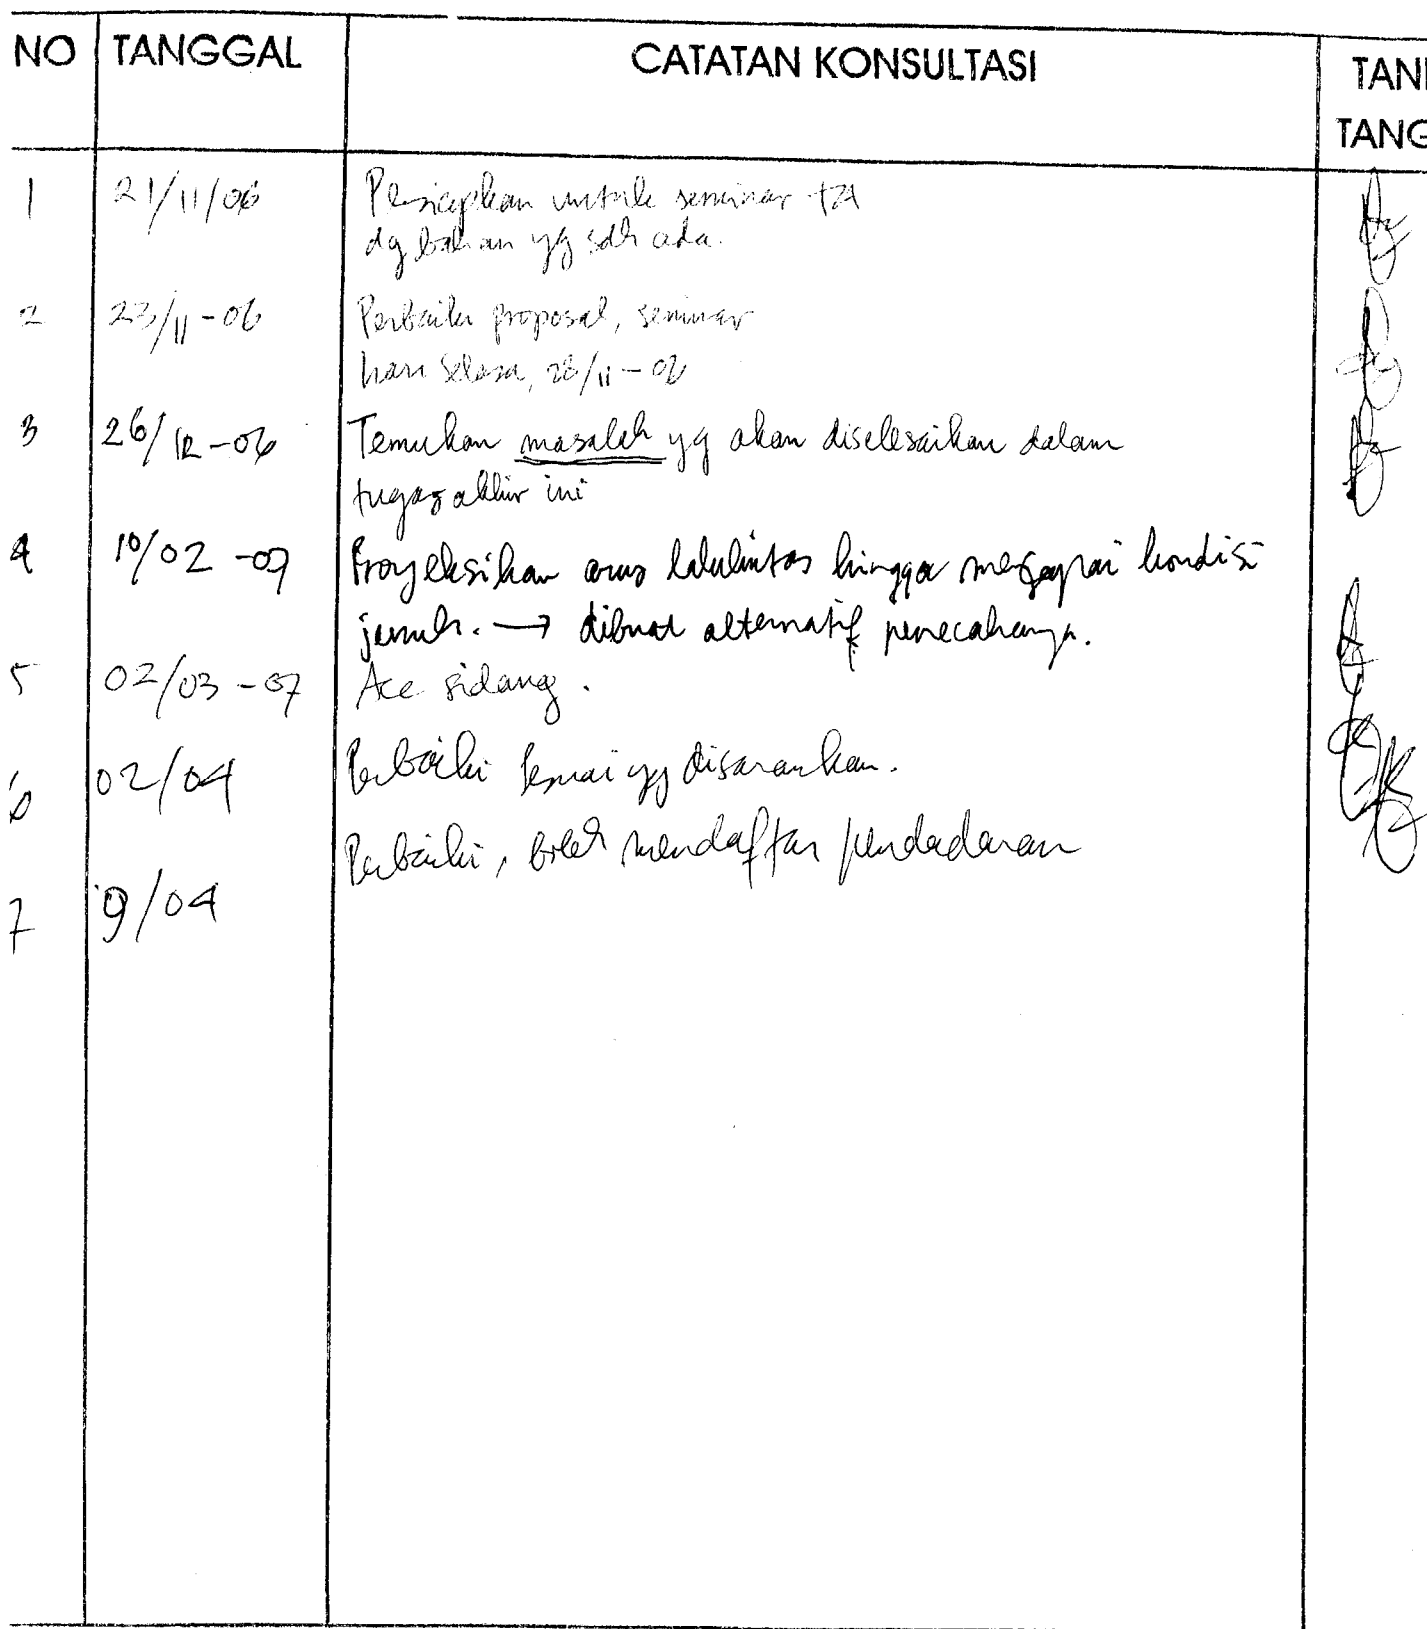 NO TANGGAL CATATAN KONSULTASI TAN
TANG
1 21/11/06 Persiapkan untuk seminar TA
dg bahan yg sdh ada.
2 23/11-06 Perbaiki proposal, seminar
hari Selasa, 28/11-06
3 26/12-06 Temukan masalah yg akan diselesaikan dalam
tugas akhir ini
4 10/02-07 Proyeksikan arus lalulintas hingga mencapai kondisi
jenuh. → dibuat alternatif pemecahannya.
5 02/03-07 Acc sidang.
6 02/04 Perbaiki sesuai yg disarankan.
Perbaiki, boleh mendaftar pendadaran
7 9/04